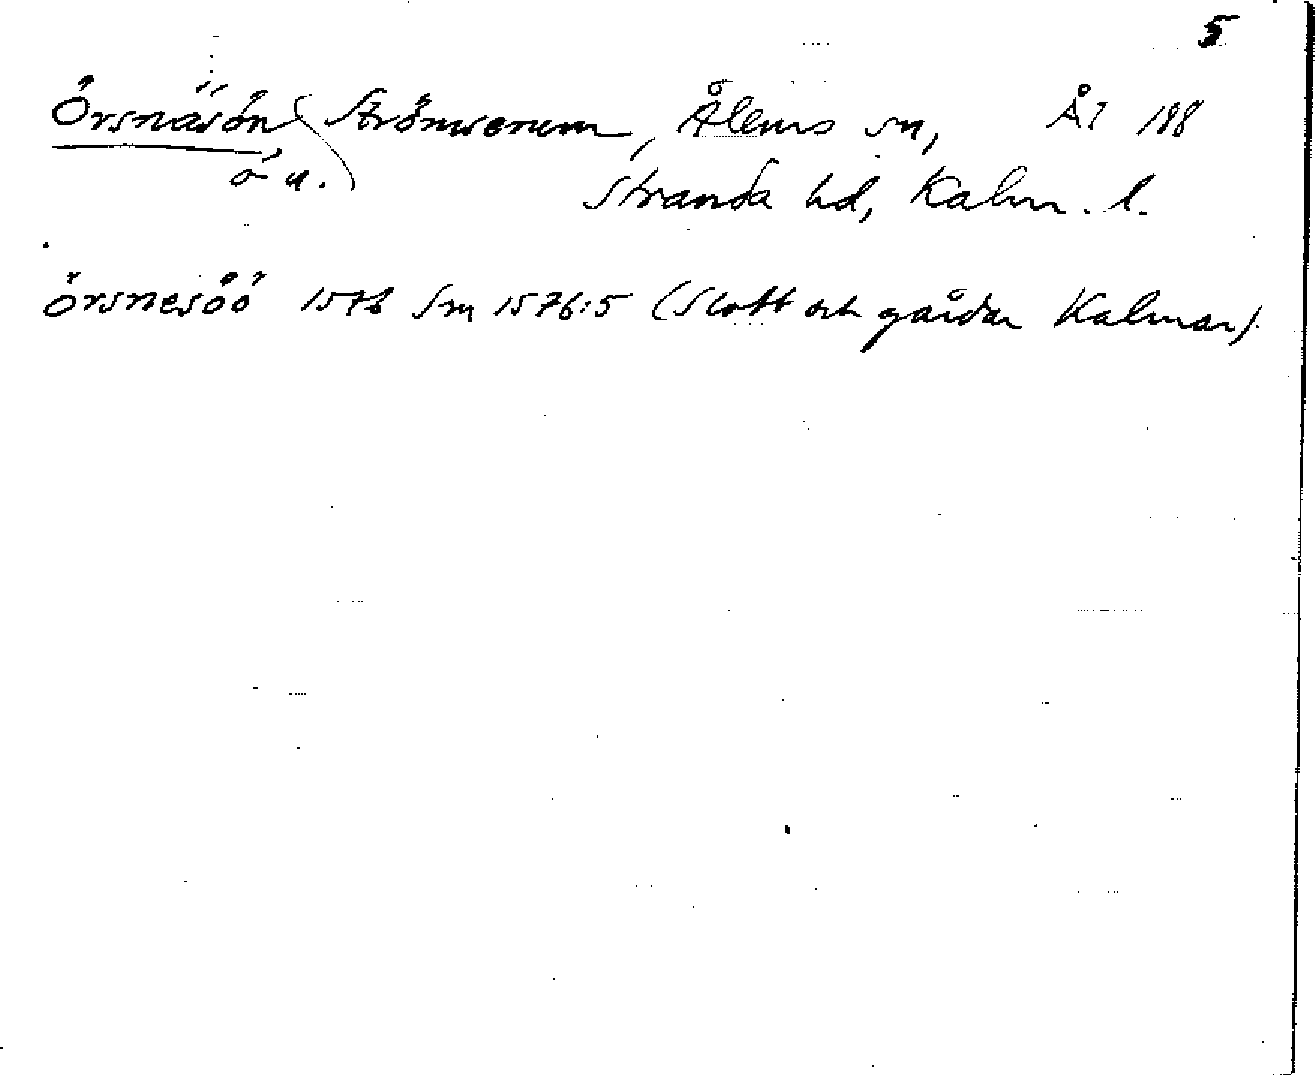 5
Örsnäsön Strömserum, Ålems sn, ÅI 188
ö u. Stranda hd, Kalm. l.
örsnesöö 1576 Sm 1576:5 (Slott och gårdar Kalmar)